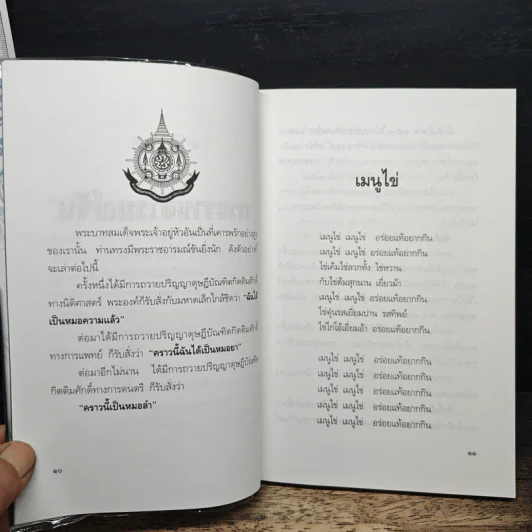 พระบาทสมเด็จพระเจ้าอยู่หัวอันเป็นที่เคารพรักอย่างสูง
ของเรานั้น ท่านทรงมีพระราชอารมณ์ขันยิ่งนัก ดังตัวอย่างที่
จะเล่าต่อไปนี้
ครั้งหนึ่งได้มีการถวายปริญญาดุษฎีบัณฑิตกิตติมศักดิ์
ทางนิติศาสตร์ พระองค์ก็รับสั่งกับมหาดเล็กใกล้ชิดว่า "ฉันได้
เป็นหมอความแล้ว"
ต่อมาได้มีการถวายปริญญาดุษฎีบัณฑิตกิตติมศักดิ์
ทางการแพทย์ ก็รับสั่งว่า "คราวนี้ฉันได้เป็นหมอยา"
ต่อมาอีกไม่นาน ได้มีการถวายปริญญาดุษฎีบัณฑิต
กิตติมศักดิ์ทางการดนตรี ก็รับสั่งว่า
"คราวนี้เป็นหมอลำ"
๑๐
เมนูไข่
เมนูไข่ เมนูไข่ อร่อยแท้อยากกิน
เมนูไข่ เมนูไข่ อร่อยแท้อยากกิน
ไข่เค็มไข่ลวกทั้ง ไข่หวาน
กับไข่ต้มสุกนาน เยี่ยวม้า
เมนูไข่ เมนูไข่ อร่อยแท้อยากกิน
ไข่ตุ๋นรสเยี่ยมปาน รสทิพย์
ไข่ไก่อิ่มเอม อ้า อร่อยแท้อยากกิน
เมนูไข่ เมนูไข่ อร่อยแท้อยากกิน
เมนูไข่ เมนูไข่ อร่อยแท้อยากกิน
เมนูไข่ เมนูไข่ อร่อยแท้อยากกิน
เมนูไข่ เมนูไข่ อร่อยแท้อยากกิน
เมนูไข่ เมนูไข่ อร่อยแท้อยากกิน
๑๑